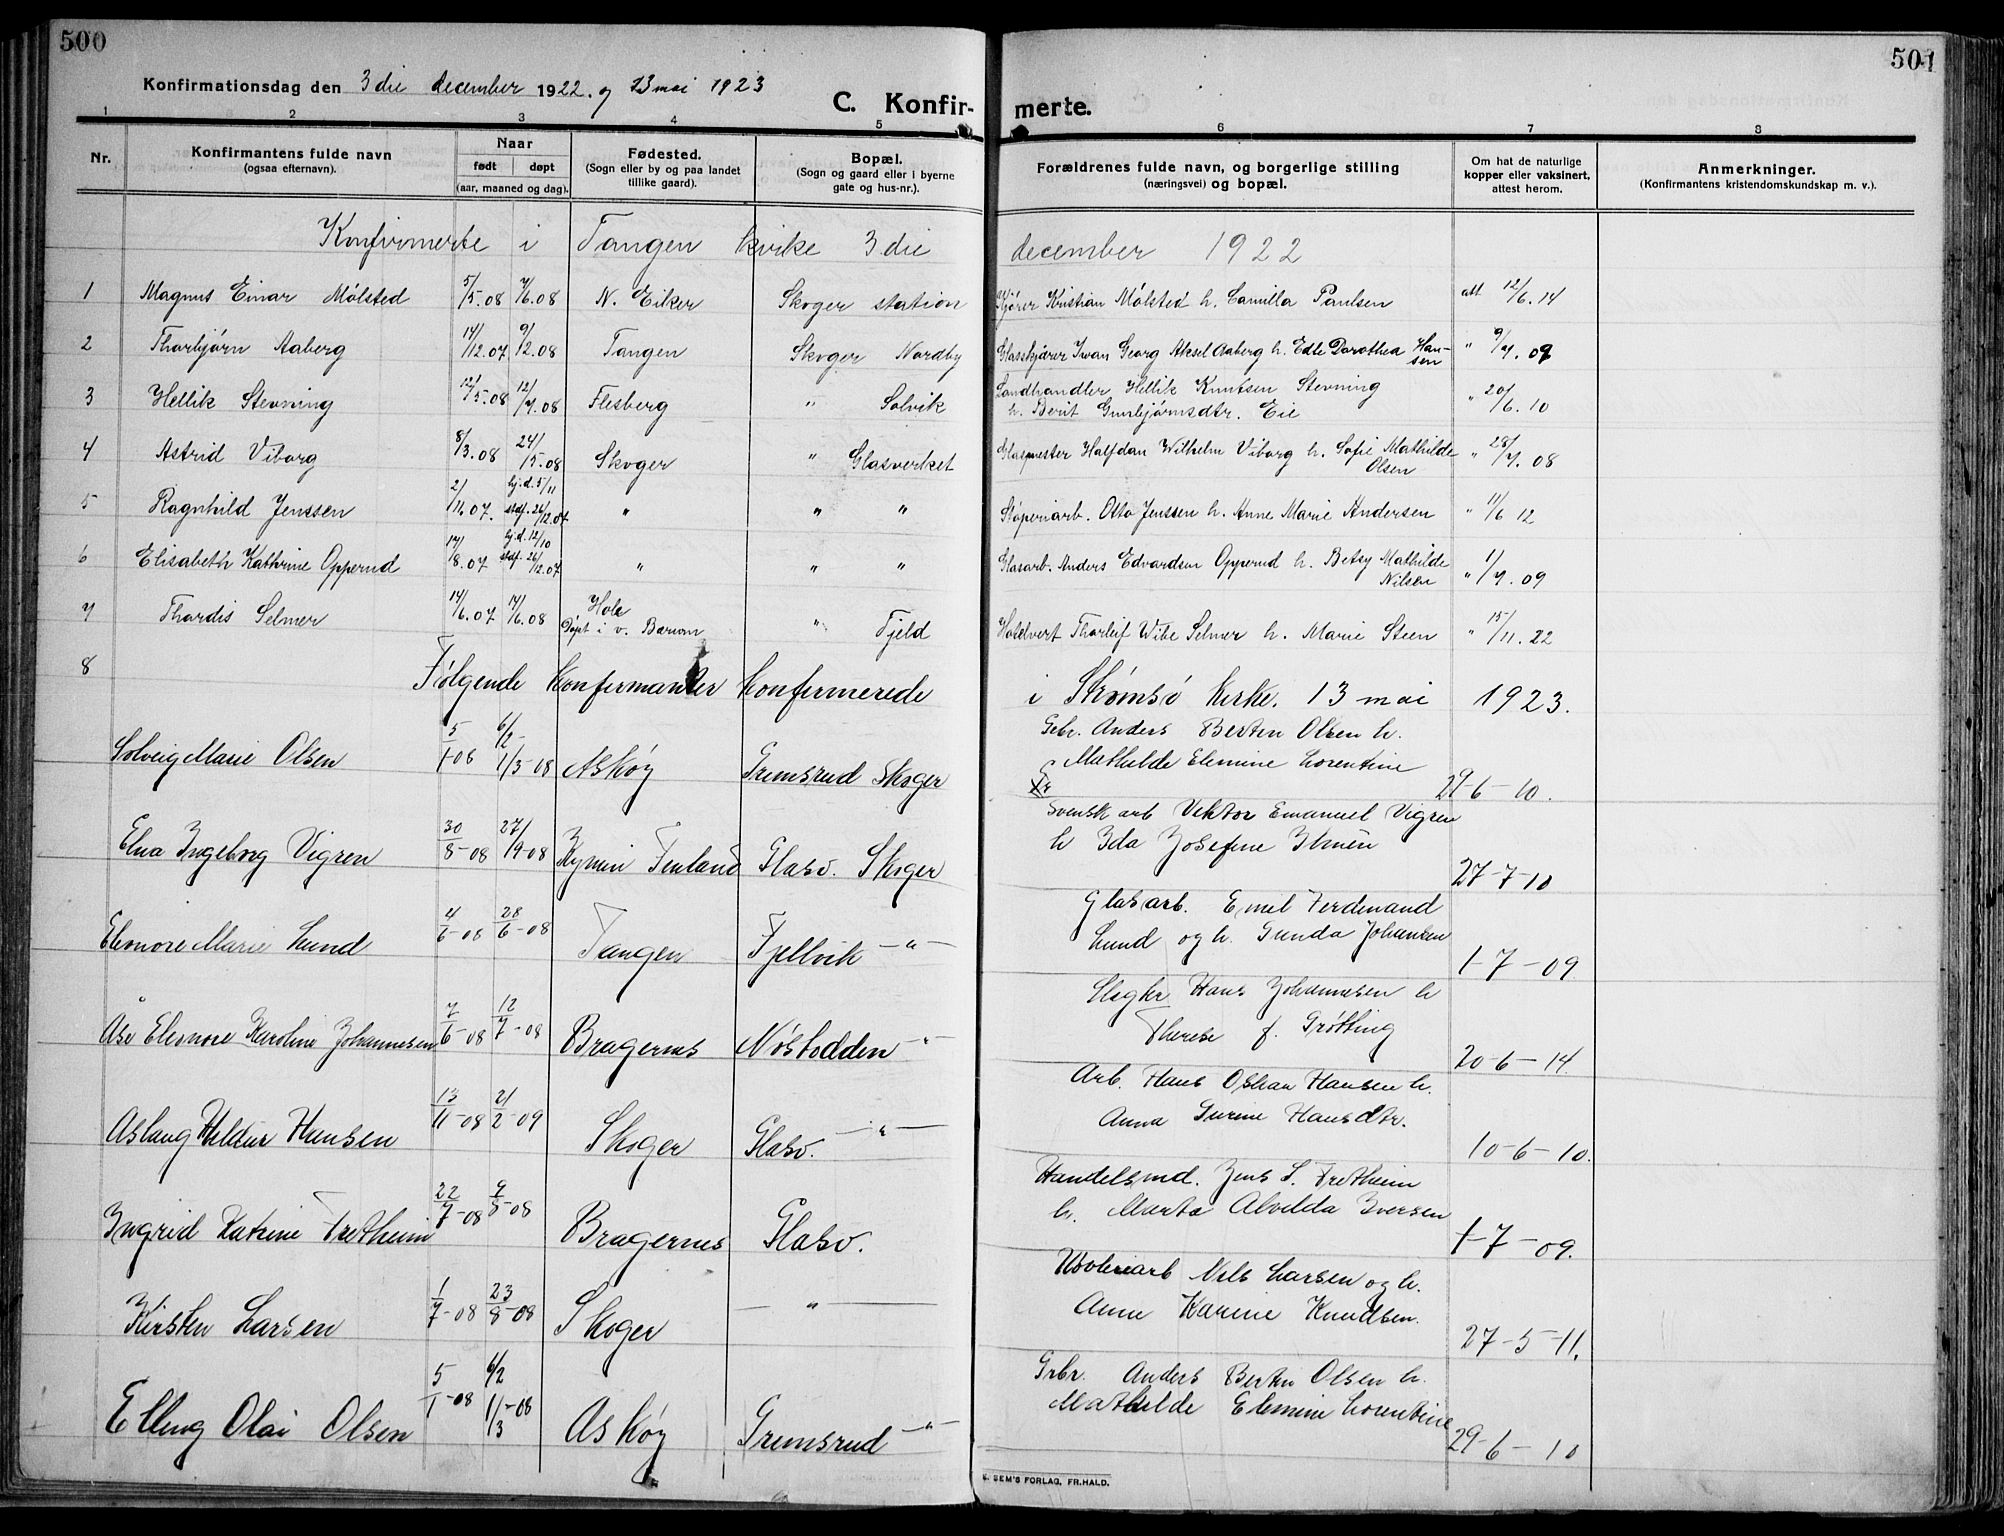 500
501
Konfirmationsdag den 3 die december 1922. og 13 mai 1923
C. Konfir- merte.
1 2 3 4 5 6 7 8
Nr.
Konfirmantens fulde navn
(ogsaa efternavn).
Naar
født døpt
(aar, maaned og dag).
Fødested.
(Sogn eller by og paa landet
tillike gaard).
Bopæl.
(Sogn og gaard eller i byerne
gate og hus-nr.).
Forældrenes fulde navn, og borgerlige stilling
(næringsvei) og bopæl.
Om hat de naturlige
kopper eller vaksinert,
attest herom.
Anmerkninger.
(Konfirmantens kristendomskundskap m. v.).
Konfirmerte i Tangen kirke 3 die december 1922
1 Magnus Einar Mølsted 5/5.08 7/6.08 N. Eiker Skoger station Kristian Mølsted h. Camilla Paulsen att 12/6.14
2 Thorbjørn Aaberg 14/12.07 9/2.08 Tangen Skoger Nordby Glasskjærer Iwan Georg Aksel Aaberg h. Edle Dorothea Han-
sen " 9/7.09
3 Hellik Stevning 12/5.08 12/7.08 Flesberg " Solvik Landhandler Hellik Knutsen Stevning
h. Berit Gunbjørnsdtr. Eie " 20/6.10
4 Astrid Viborg 8/3.08 24/5.08 Skoger " Glasverket Glasmester Halfdan Wilhelm Viborg h. Sofie Mathilde
Olsen " 28/7.08
5 Ragnhild Jenssen 2/11.07. hj.d. 5/11
stdf. 26/12.07 " " " Støperiarb. Otto Jenssen h. Anne Marie Andersen " 11/6 12
6 Elisabeth Kathrine Opperud 17/8.07 hj.d. 12/10
stdf. 26/12.07 " " " Glasarb. Anders Edvardsen Opperud h. Betsy Mathilde
Nilsen " 1/7.09
7 Thordis Selmer 14/6.07 14/6.08 Hole
Døpt i v. Bærum " Fjeld Hotelvert Thorleif Wibe Selmer h. Marie Steen " 15/11.22
8 Følgende Konfirmanter Konfirmerede i Strømsø Kirke. 13 mai 1923.
Solveig Marie Olsen 5/1-08 6/2- 1/3-08 Askøy Gremsrud Skoger Gbr. Anders Bertin Olsen h.
Mathilde Elemine Lorentine 29-6-10.
Elna Ingeborg Vigren 30/8-08 27/9-08 Kymin Finland Glasv. Skoger Svensk arb Viktor Emanuel Vigren
h Ida Josefine Ilmén 27-7-10
Elenore Marie Lund 4/6-08 28/6-08 Tangen Fjellvik -"- Glasarb. Emil Ferdinand
Lund og h. Gunda Johansen 1-7-09
Åse Elenore Karoline Johannesen 7/6-08 12/7-08 Bragernes Nøstodden -"- Hans Johannesen h
Therese f. Grøtting 20-6-14
Aslaug Hildur Hansen 13/11-08 21/2-09 Skoger Glasv. -"- Arb. Hans Oskar Hansen h.
Anna Gurine Hansdtr. 10-6-10.
Ingrid Katrine Tretheim 22/7-08 9/8-08 Bragernes Glasv. Handelsmd. Jens S. Tretheim
h. Marta Alvilda Iversen 1-7-09.
Kirsten Larsen 1/7-08 23/8-08 Skoger -"- Nils Larsen og h.
Anne Karine Knudsen. 27-5-11.
Elling Olai Olsen 5/1-08 6/2 1/3-08 Askøy Gremsrud -"- Grbr. Anders Bertin Olsen h.
Mathilde Elemine Lorentine 29-6-10
SEM'S FORLAG, FR.HALD.